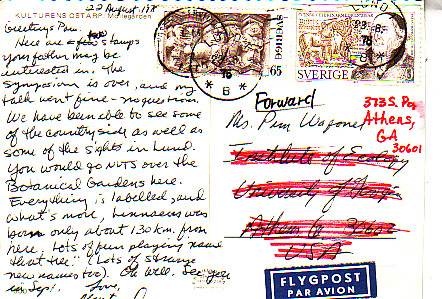 22 August 1978
KULTURENS ÖSTARP. Mölleg̊ården
Greetings Pam.
Here are a few two stamps
your father may be
interested in. The
symposium is over, and my
talk went fine - no questions.
We have been able to see some
of the countryside as well as
some of the sights in Lund.
You would go NUTS over the
Botanical Gardens here.
Everything is labelled, and
what's more, Linnaeus was
born only about 130 km. from
here. Lots of fun playing "name
that tree." (Lots of strange
new names too). Oh well. See you
in Sept. Love,
SVERIGE
65
SVERIGE
LUND
78
Forward
Ms. Pam
373 S.
Athens,
GA
30601
Institute of Ecology
University of Georgia
Athens Ga 30602
USA
FLYGPOST
PAR AVION